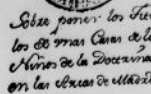 Sobre poner los Fie
los &ᵃ mas Casas de l
Niños de la Doctrina
en las Arcas de Madrid